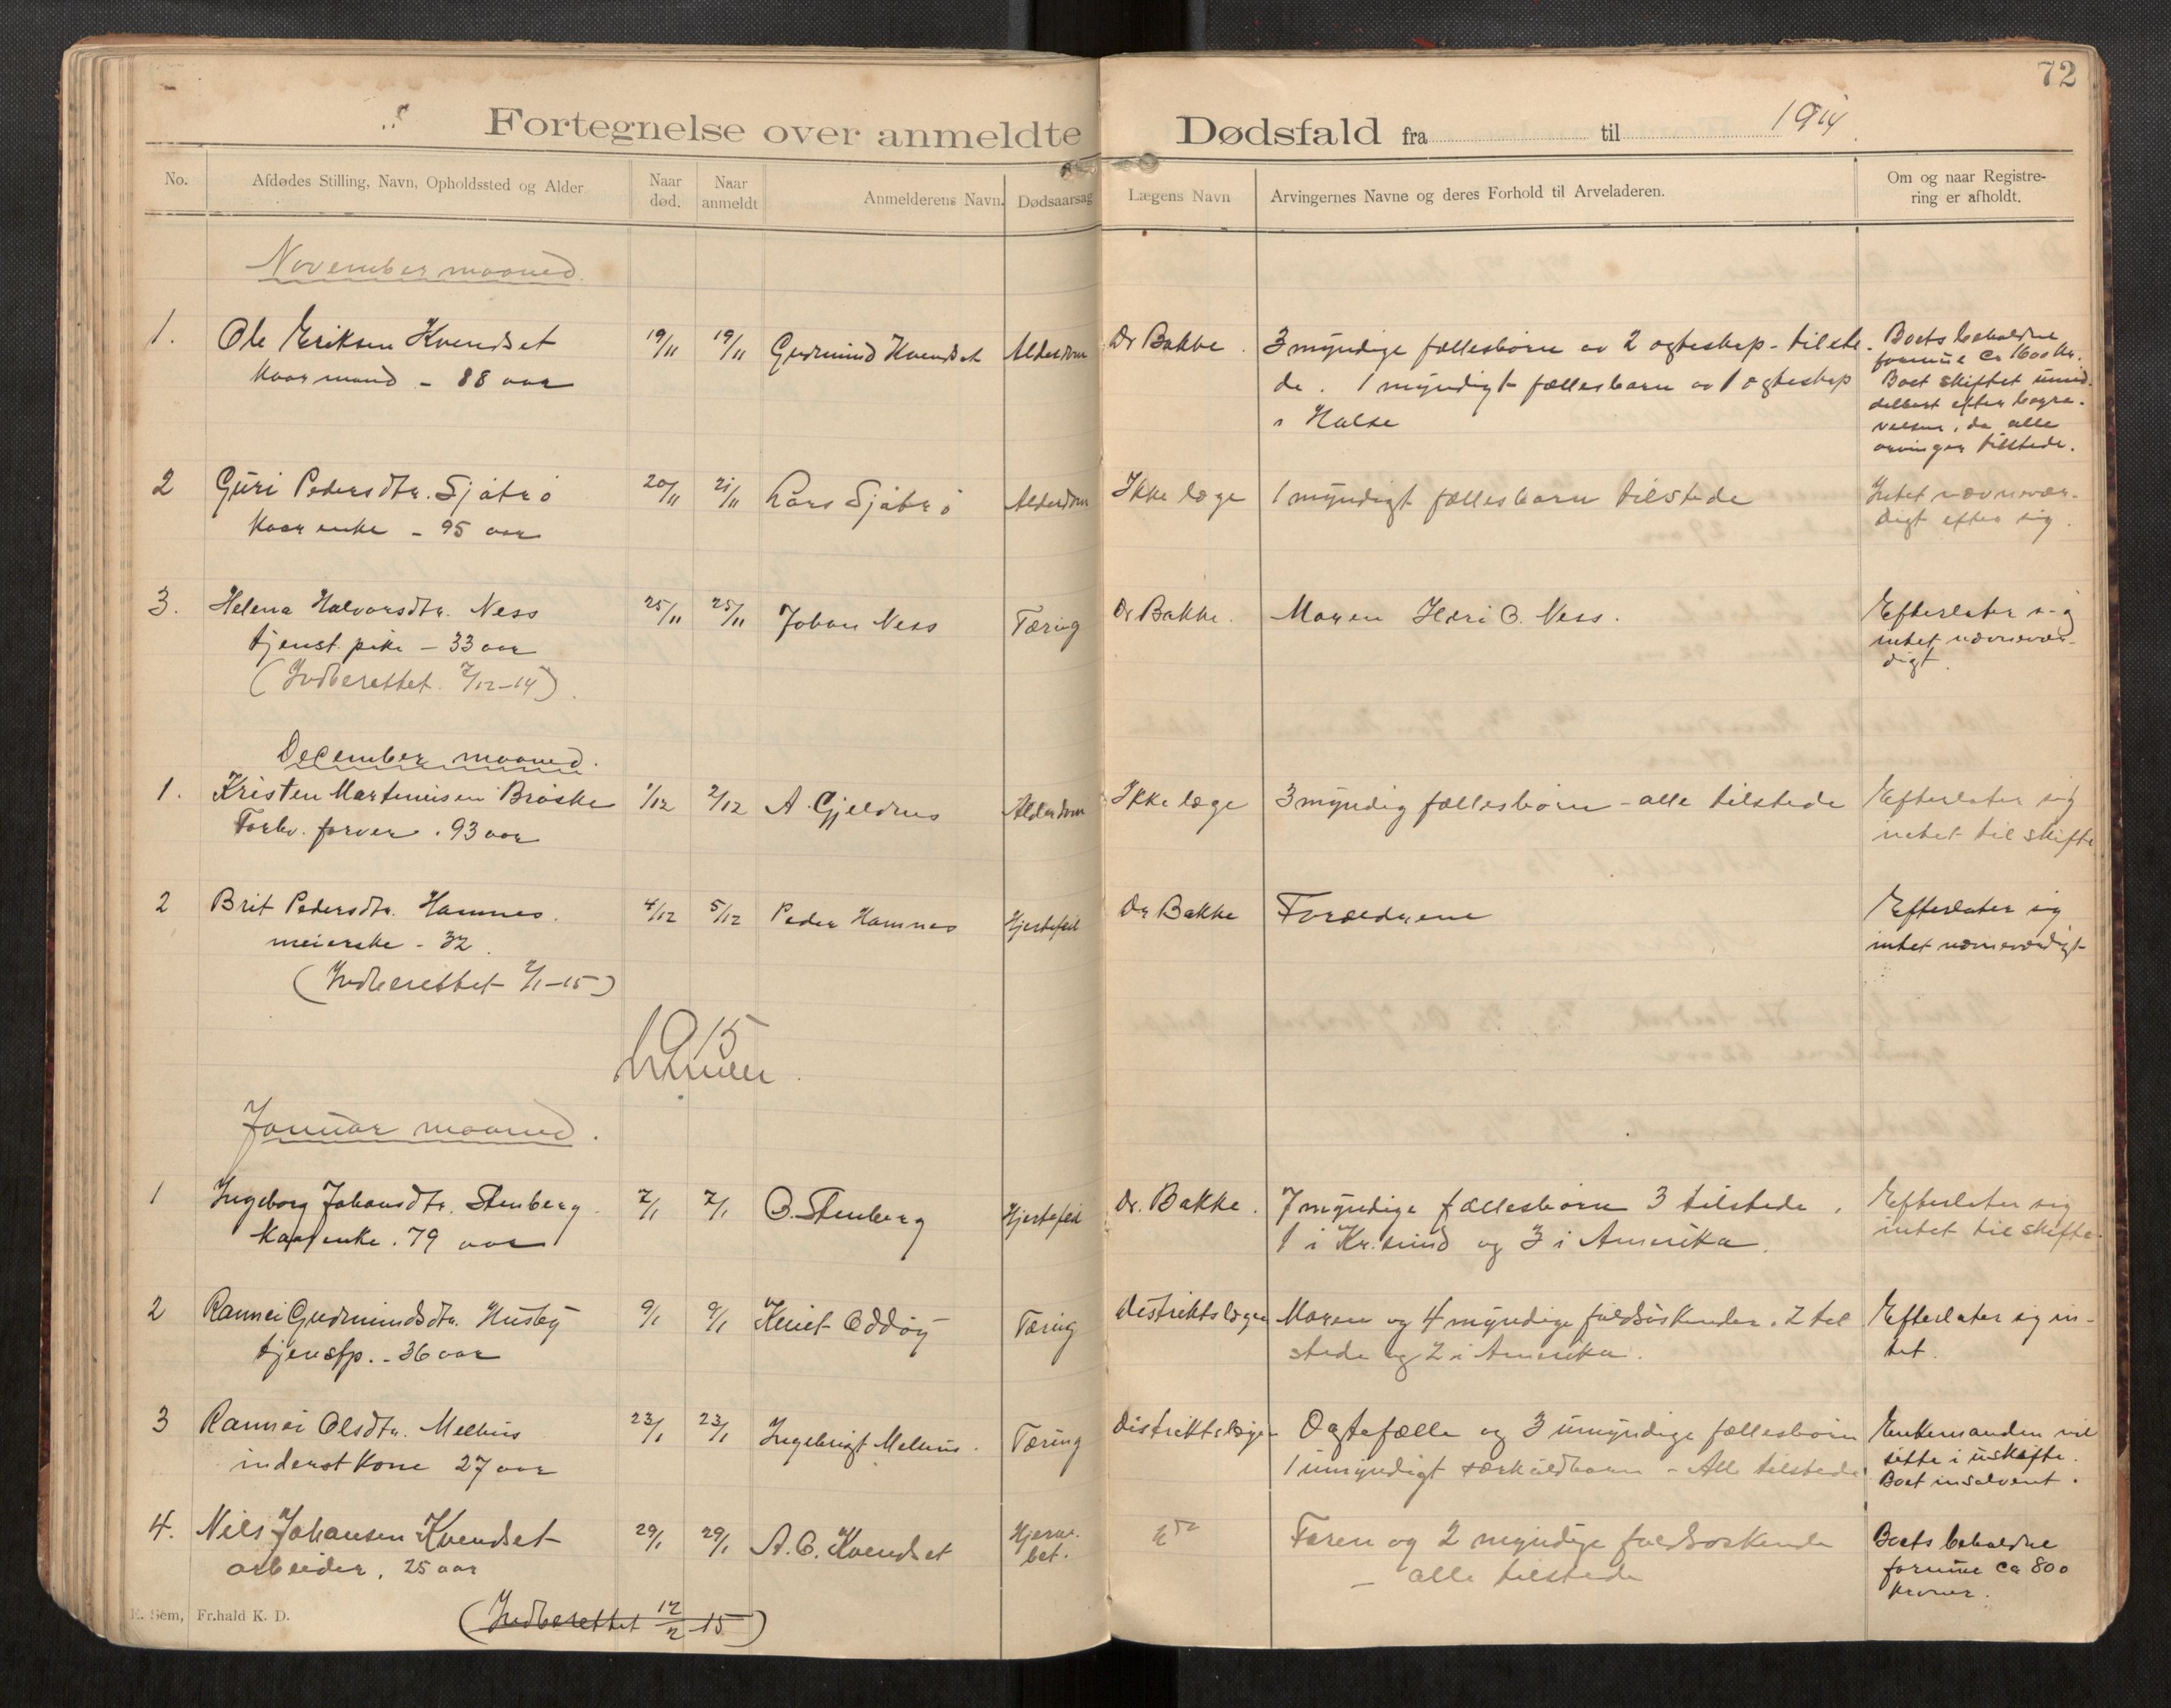 72
Fortegnelse over anmeldte Dødsfald fra til 1914
No.
Afdødes Stilling, Navn, Opholdssted og Alder
Naar død.
Naar anmeldt
Anmelderens Navn.
Dødsaarsag
Lægens Navn
Arvingernes Navne og deres Forhold til Arveladeren.
Om og naar Registrering er afholdt.
November maaned
1. Ole Eriksen Kvendset 19/11 19/11 Gudmund Kvendset Alderdom Dr Bakke. 3 myndige fællesbørn av 2 ogteskap - tilste-
kaarmand - 88 aar de. 1 myndigt fællesbarn av 1 ogteskap
i Halse
Boets beholdne
formue Ca 1600 kr.
Boet skiftet umid-
delbart efter begra-
velsen, da alle
arvinger tilstede.
2 Guri Pedersdtr. Sjøbrø 20/11 21/11 Lars Sjøbrø Alderdom Ikke læge 1 myndigt fællesbarn tilstede Intet nævnevær-
kaarenke - 95 aar digt efter sig.
3. Helena Halvorsdtr. Ness 25/11 25/11 Johan Ness Tæring Dr Bakke. Moren B. Ness. Efterlater sig
tjenst. pike - 33 aar intet nævnevær-
(Indberettet 7/12-14) digt.
December maaned.
1. Kristen Martinusen Brøske 1/12 2/12 A. Gjeldnes Alderdom Ikke læge 3 myndig fællesbørn - alle tilstede Efterlater sig
Forhv. farver. 93 aar intet til skifte
2 Brit Pedersdtr. Hamnes. 4/12 5/12 Peder Hamnes Hjertefeil Dr Bakke Forældrene Efterlater sig
meierske - 32. intet nævneværdigt
(Indberettet 2/1-15)
1915
Januar maaned.
1 Ingeborg Johansdtr. Stenberg. 7/1 7/1 O. Stenberg Hjertefeil Dr. Bakke. 7 myndige fællesbørn 3 tilstede, Efterlater sig
kaarenke. 79 aar 1 i Kr.sund og 3 i Amerika. intet til skifte.
2 Rannei Gudmundsdtr. Husby 9/1 9/1 Knut Oddøy Tæring Distriktslægen Moren og 4 myndige fuldsøskender. 2 til Efterlater sig in-
tjenstp. - 36 aar stede og 2 i Amerika. tet.
3 Rannei Olsdtr. Melhus 23/1 23/1 Ingebrigt Melhus. Tæring Distriktslægen Ogtefælle og 3 umyndige fællesbørn Enkemanden vil
inderst kone 27 aar 1 umyndigt særkuldbarn - Alle tilstede sitte i uskifte.
Boet insolvent.
4. Nils Johansen Kvendset 29/1 29/1 A. O. Kvendset Hjerne- Faren og 2 myndige fuldsøskende Boets beholdne
arbeider. 25 aar bet. - alle tilstede formue ca 800
kroner.
E. Sem, Fr.hald K. D.
(Indberettet 12/2-15)